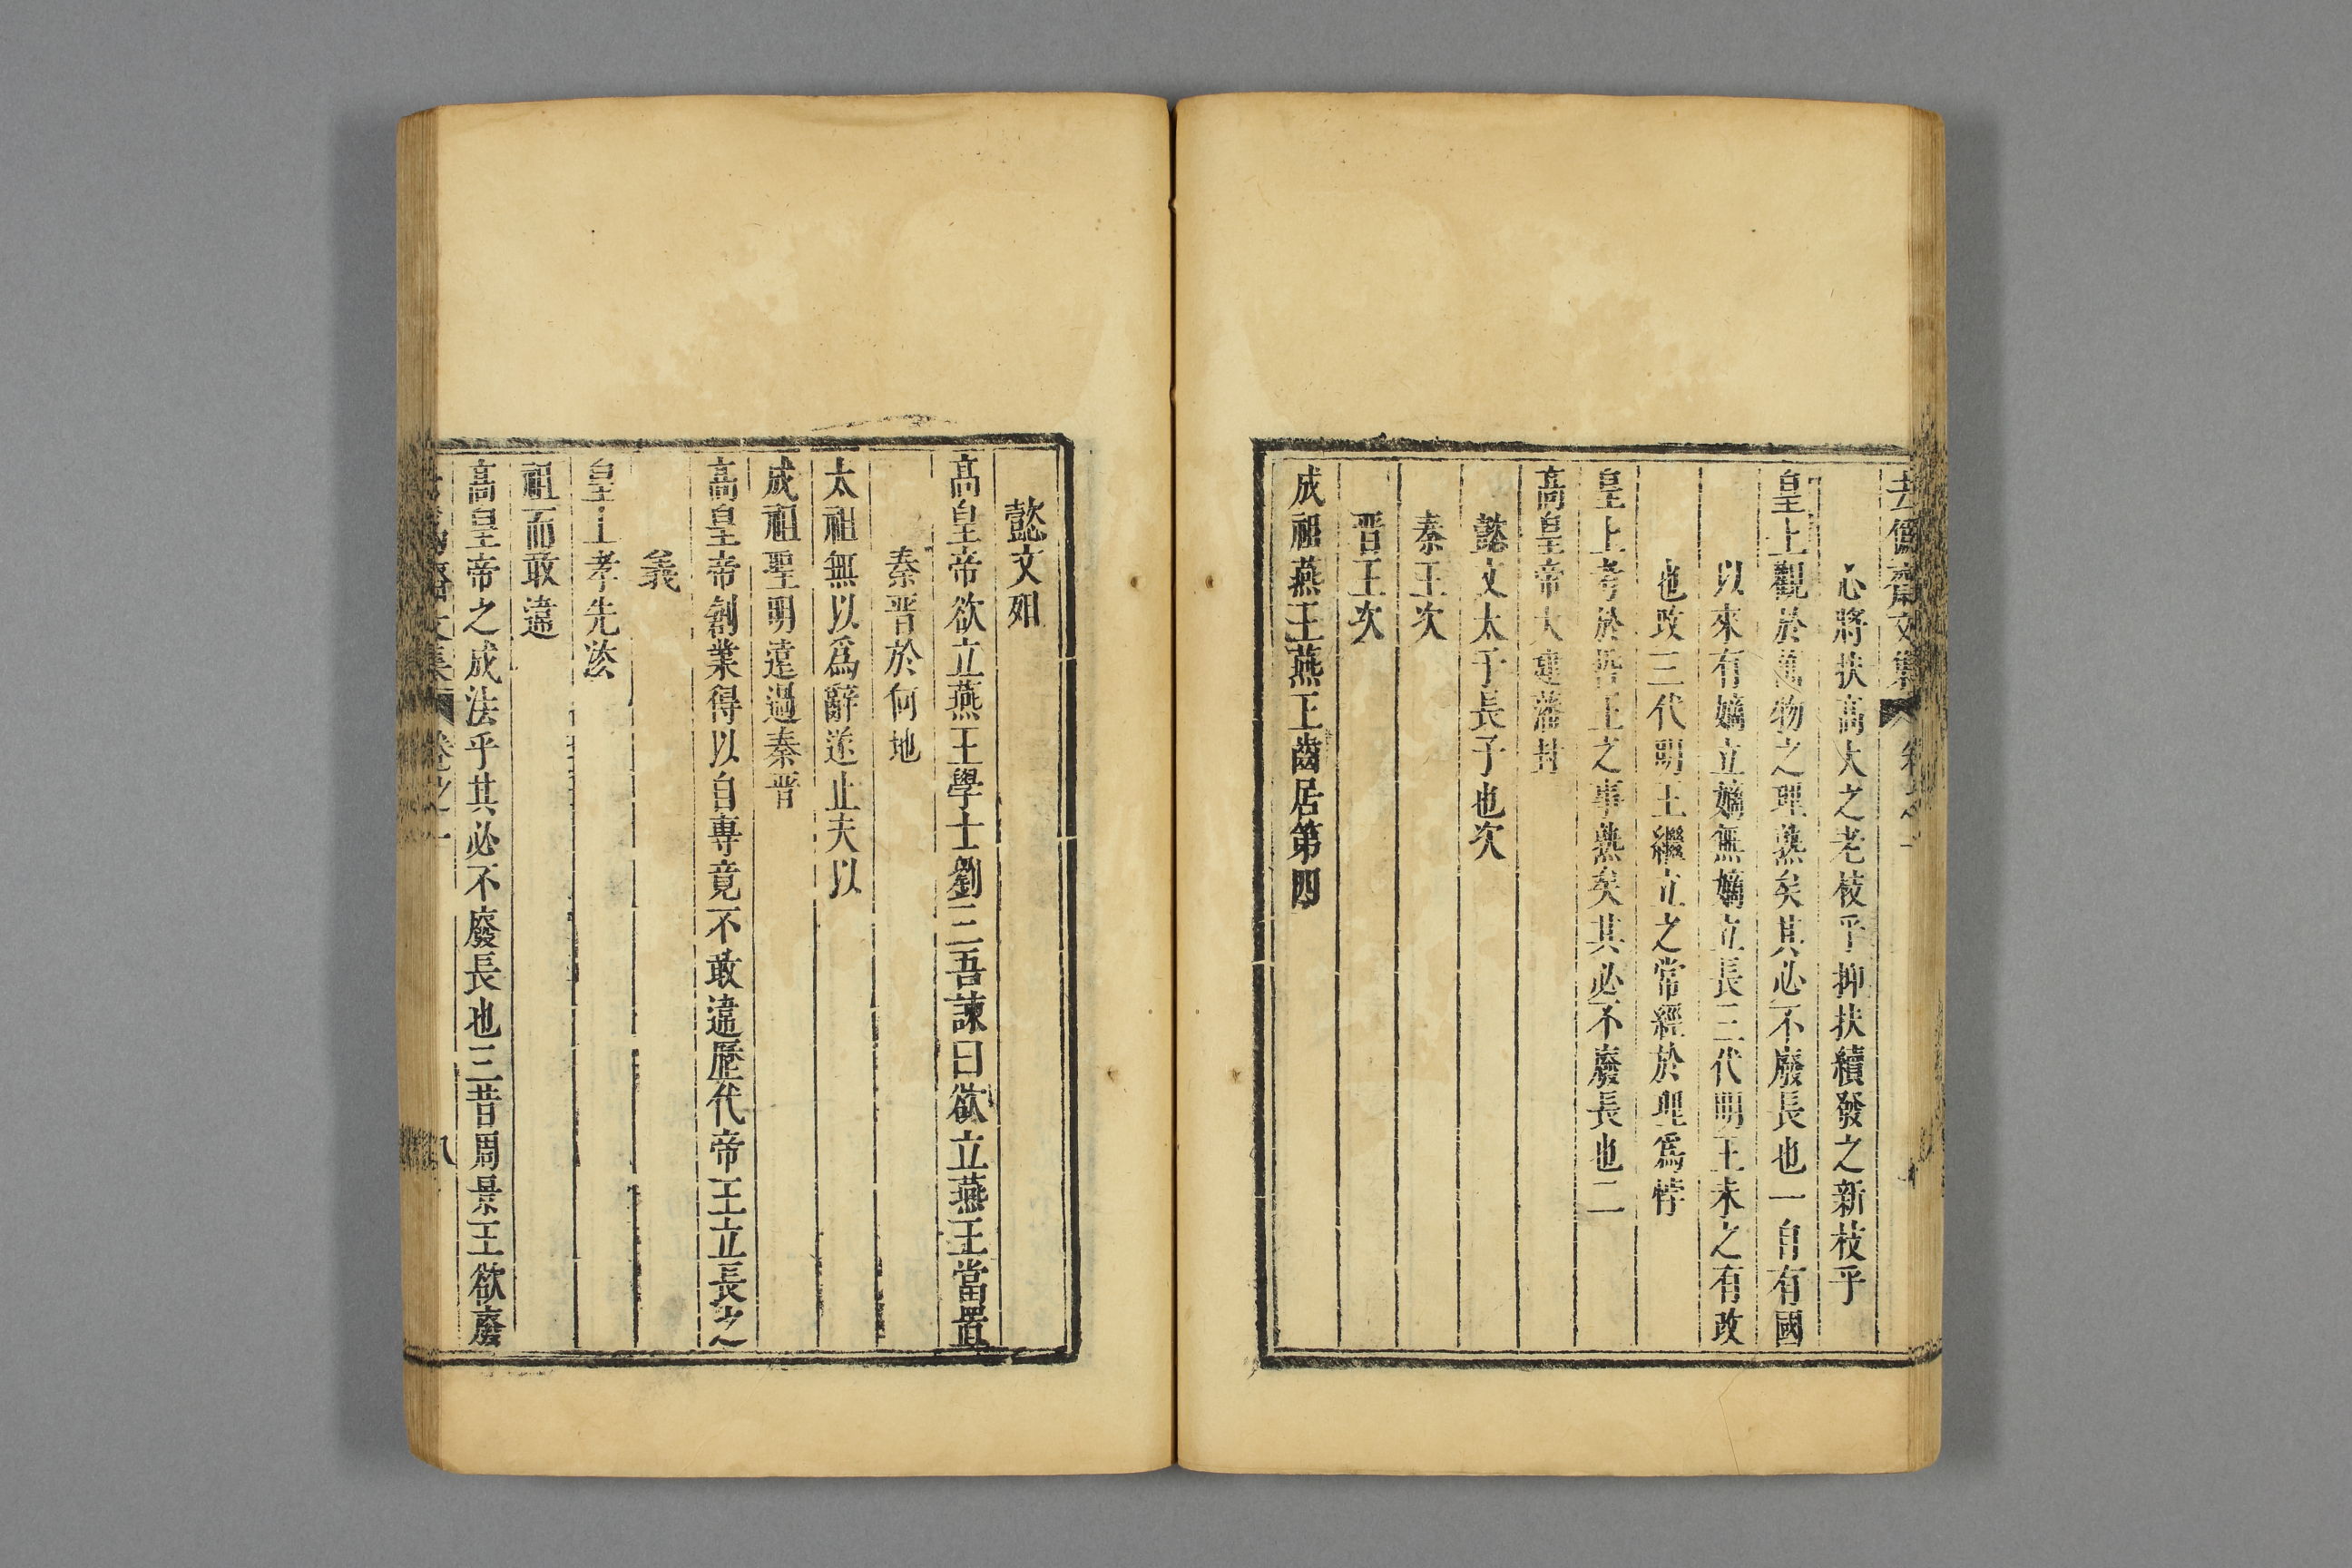 去偽齋文集 卷之一
心將扶高大之老枝乎抑扶續發之新枝乎
皇上觀於萬物之理熟矣其必不廢長也一自有國
以來有嫡立嫡無嫡立長三代明王未之有改
也改三代明王繼立之常經於理爲悖
皇上考於哲王之事熟矣其必不廢長也二
高皇帝大建藩封
懿文太子長子也次
秦王次
晋王次
成祖燕王燕王齒居第四
懿文殂
高皇帝欲立燕王學士劉三吾諫曰欲立燕王當置
秦晋於何地
太祖無以爲辭遂止夫以
成祖聖明遠過秦晋
高皇帝創業得以自專竟不敢違歷代帝王立長之
義
皇上孝先法
祖而敢違
高皇帝之成法乎其必不廢長也三昔周景王欲廢
文集 卷之一 八